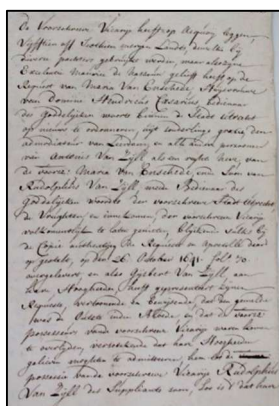 De Voorschreve Vicarije heeft op Acquoy leggen
Vijfftien off Sestien mergen Lands, dewelke bij
diverse pachters gebruijckt worden, waer alsoo
Excellentie Maurice de Nassau gelieft heeft op de
Request van Maria Van Enschede, Huijsvrouw
van Domine Andreas Cæsarius bedienaer
des Goddelijken woorts binnen de Stadt Utrecht
op nieuws te ordonneren, uijt sonderlinge gratie, den
admodiateur van Leerdam, en alle andre persoonen
van Antonis Van Zijll, als en regte heer, van
de voorsz. Maria Van Enschede, en den Soon van
Rudolphus Van Zijll, mede Bedienaer des
Goddelijken Woordts der voorschreve Stadt Utrecht
de Vrughten en innekomen der voorschreve Vicarije
volkomentlijk te laten genieten, blijkende sulks bij
de Copie authentijcq der Requeste en Apostille daer
op gestelt, op den 26 October 1641. folº 70.
overgelevert, en alsoo Gijsbert Van Zijll aen
haer Hoogheden heeft gepresenteert Zijne
Requeste, vertoonende en Bewijsende, dat den gemelten
was in Officie inden Maede, en dat de voorsz
possesseurs vande voorschreve Vicarije waren komen
te overlijden, versoekende dat haer Hoogheden
gelieven mogten te admitteren, hem tot de
possessie vande voorschreve Vicarije Rudolphus
Van Zijll des Suppliants soon, Soo is 't dat haer